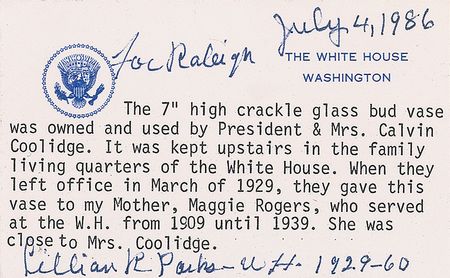 July 4, 1986
Joe Raleign
THE WHITE HOUSE
WASHINGTON
The 7" high crackle glass bud vase
was owned and used by President & Mrs. Calvin
Coolidge. It was kept upstairs in the family
living quarters of the White House. When they
left office in March of 1929, they gave this
vase to my Mother, Maggie Rogers, who served
at the W.H. from 1909 until 1939. She was
close to Mrs. Coolidge.
Lillian R Parks - W.H. - 1929-60